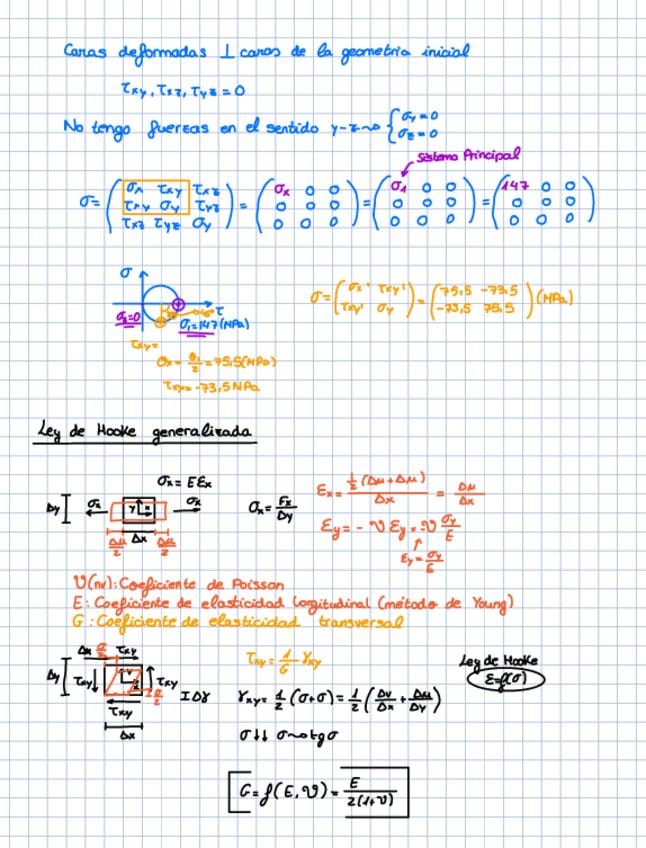 Caras deformadas ⊥ caras de la geometria inicial
τxy, τxz, τyz = 0
No tengo fuerzas en el sentido y-z → { σy = 0
σz = 0
Sistema Principal
σ = ( σx τxy τxz ) = ( σx 0 0 ) = ( σ1 0 0 ) = ( 147 0 0 )
( τxy σy τyz ) ( 0 0 0 ) ( 0 0 0 ) ( 0 0 0 )
( τxz τyz σy ) ( 0 0 0 ) ( 0 0 0 ) ( 0 0 0 )
σ
τ
σ2=0
σ1=147 (MPa)
τxy=
σx = σ1/2 = 75,5 (MPa)
τxy = -73,5 MPa
σ = ( σx' τxy' ) = ( 75,5 -73,5 ) (MPa)
( τxy' σy ) ( -73,5 75,5 )
Ley de Hooke generalizada
σx = E εx
Δy σx y x σx
Δu/2 Δx Δu/2
σx = Fx/Δy
εx = ½(Δu+Δu)/Δx = Δu/Δx
εy = -ν εy = ν σy/E
↑
εy = σy/E
ν(nv): Coeficiente de Poisson
E: Coeficiente de elasticidad longitudinal (método de Young)
G: Coeficiente de elasticidad transversal
Δu τxy
Δy τxy τxy
τxy
Δx
τxy = 1/G γxy
Ley de Hooke
ε=f(σ)
γxy = ½ (σ+σ) = ½ (Δv/Δx + Δu/Δy)
σ↓↓ σ→tgσ
G = f(E,ν) = E/2(1+ν)